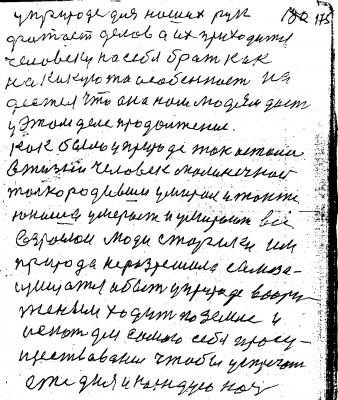 у природе для наших рук 180 175
фатает делов а их приходится
человеку на себя брат как
на какуюто особенност на
деется что она нам людям даст
у этом деле продолжение.
как было у природе так остали
в жизни человек маличечкай
толкородивши умирал и тоже
юноша умерает и умирают все
взрослой люди старики им
природа неразрешила самоза-
щищатся а быт у природе воору
женым ходит по земле и
искат для самого себя прасу-
ществавания чтобы устречат
еже дня и каждую ноч